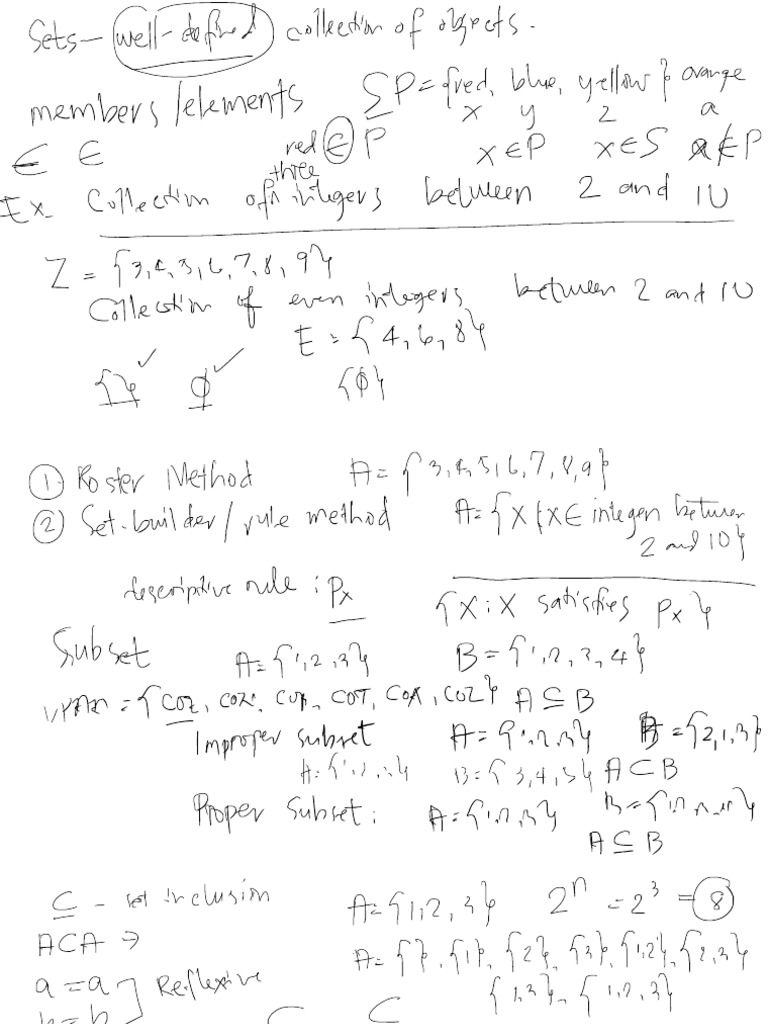 Sets - well-defined collection of objects.
members/elements ΣP = {red, blue, yellow} orange
x y z a
∈ ∈ red ∈ P x ∈ P x ∈ S a ∉ P
three
Ex Collection of integers between 2 and 10
Z = {3,4,5,6,7,8,9}
Collection of even integers between 2 and 10
E = {4,6,8}
{} ✓ ϕ ✓ {ϕ}
① Roster Method A = {3,4,5,6,7,8,9}
② Set-builder/rule method A = {x | x ∈ integers between
2 and 10}
descriptive rule : Px {x : x satisfies Px}
Subset A = {1,2,3} B = {1,2,3,4}
= {COE, COT, COZ} A ⊆ B
Improper subset A = {1,2,3} B = {2,1,3}
B = {3,4,5} A ⊂ B
Proper Subset : A = {1,2,3}
A ⊆ B
⊆ - set inclusion A = {1,2,3} 2ⁿ = 2³ = 8
A ⊂ A → A = {}, {1}, {2}, {3}, {1,2}, {2,3}
a = a ] Reflexive {1,3}, {1,2,3}
b = b ⊂ ⊂